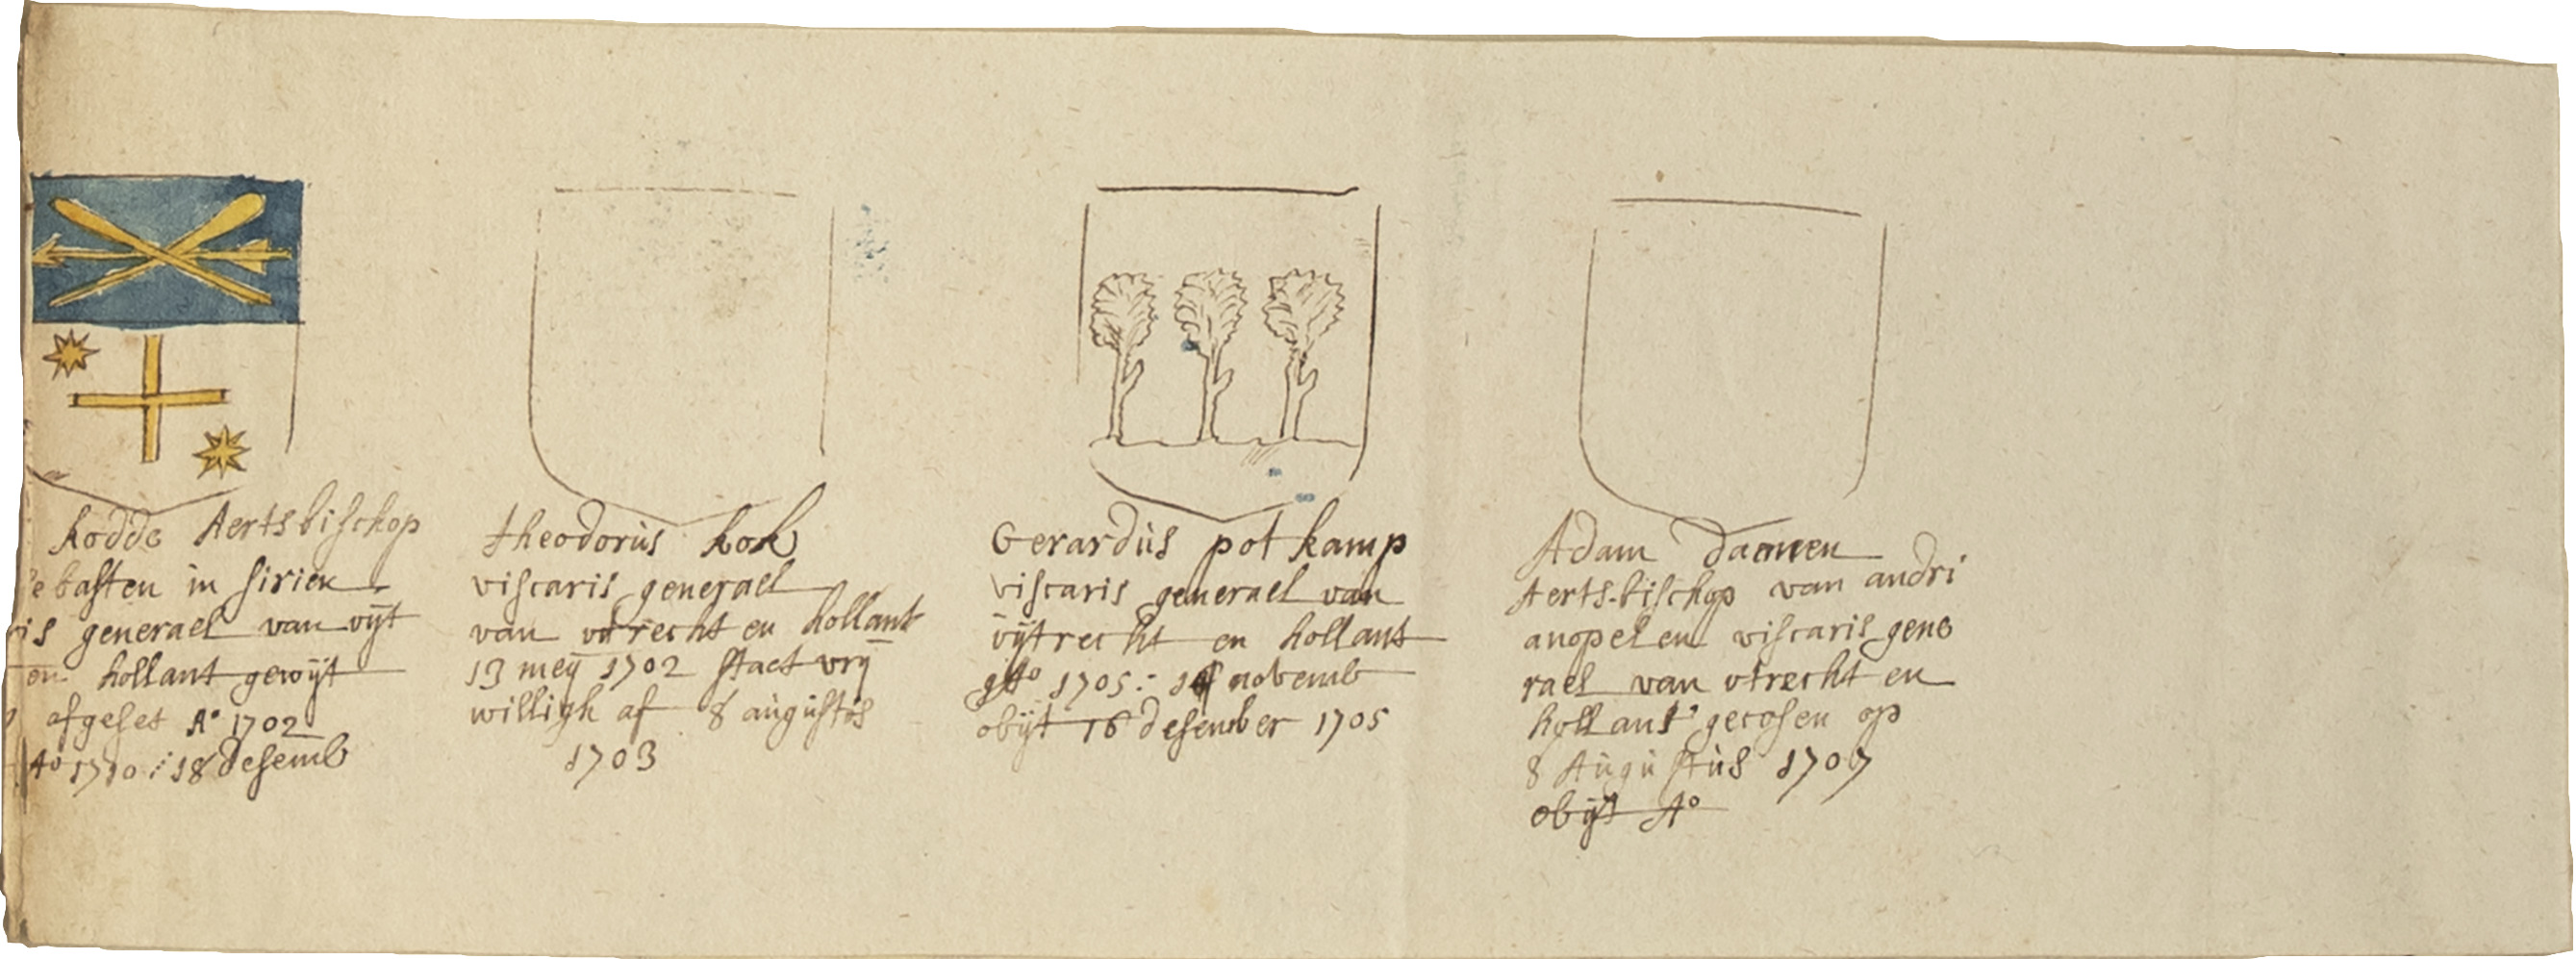 kodde Aertsbischop
ebasten in sirien
is generael van vÿt
en hollant gewÿt
afgeset A° 1702
A° 1710 : 18 desemb
theodorùs kok
viscaris generael
van vtrecht en hollant
13 meÿ 1702 staet vrÿ
willigh af 8 aùgùstùs
1703
Gerardùs pot kamp
viscaris generael van
vÿtrecht en hollant
1705 :- novemb
obÿt 16 desember 1705
Adam daemen
Aerts-bischop van andri
anopel en viscaris gene
rael van vtrecht en
hollant gecosen op
8 Aùgùstùs 1707
obÿt A°